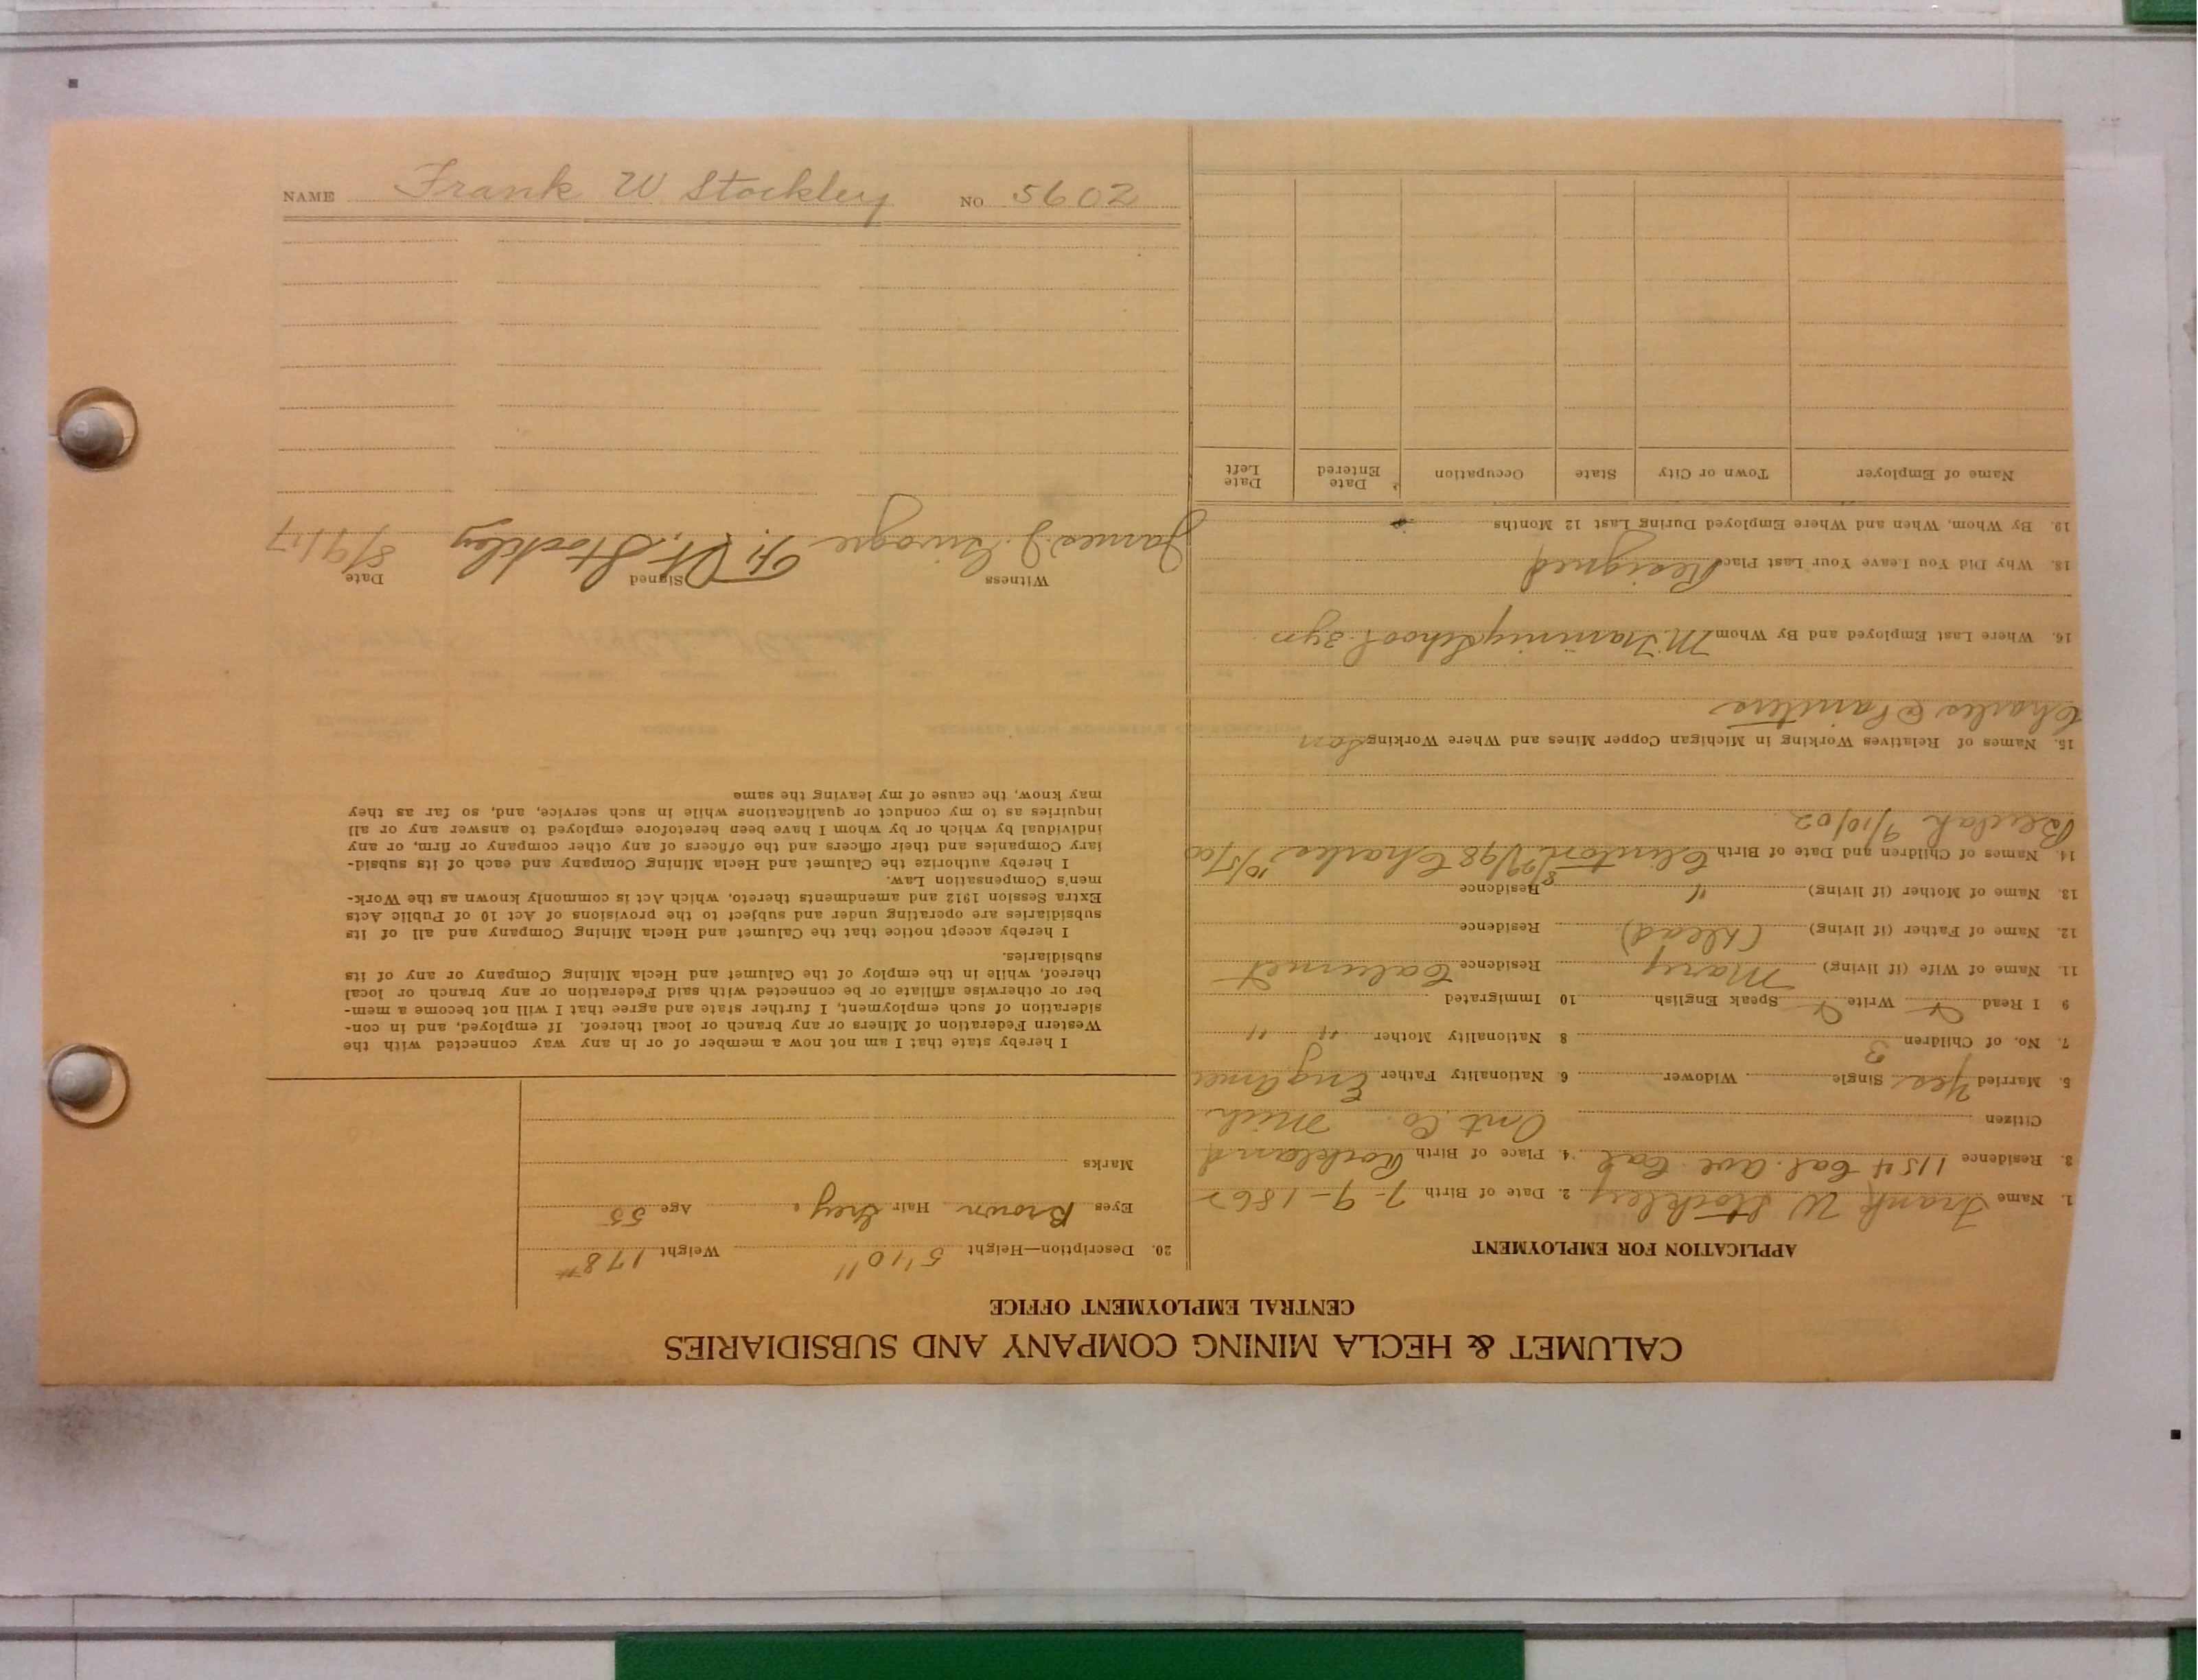 CALUMET & HECLA MINING COMPANY AND SUBSIDIARIES
CENTRAL EMPLOYMENT OFFICE
APPLICATION FOR EMPLOYMENT
1. Name Frank W Stockley 2. Date of Birth 7-9-1862
3. Residence 1154 Cal. ave Cal 4. Place of Birth Rockland
Citizen Ont. Co. Mich
5. Married Yes Single Widower 6. Nationality Father English
7. No. of Children 3 8 Nationality Mother " "
9 I Read Write Speak English 10 Immigrated
11. Name of Wife (if living) Mary Residence Calumet
12. Name of Father (if living) (dead) Residence
13. Name of Mother (if living) " Residence
14. Names of Children and Date of Birth Clinton 8/29/98 Charles 10/5/00
Beulah 9/10/02
15. Names of Relatives Working in Michigan Copper Mines and Where Working Son
Charles @ Painters
16. Where Last Employed and By Whom M Training School 3 yrs
18. Why Did You Leave Your Last Place Resigned
19. By Whom, When and Where Employed During Last 12 Months
Name of Employer Town or City State Occupation Date Entered Date Left
20. Description—Height 5'10" Weight 178#
Eyes Brown Hair Grey. Age 55
Marks
I hereby state that I am not now a member of or in any way connected with the
Western Federation of Miners or any branch or local thereof. If employed, and in con-
sideration of such employment, I further state and agree that I will not become a mem-
ber or otherwise affiliate or be connected with said Federation or any branch or local
thereof, while in the employ of the Calumet and Hecla Mining Company or any of its
subsidiaries.
I hereby accept notice that the Calumet and Hecla Mining Company and all of its
subsidiaries are operating under and subject to the provisions of Act 10 of Public Acts
Extra Session 1912 and amendments thereto, which Act is commonly known as the Work-
men's Compensation Law.
I hereby authorize the Calumet and Hecla Mining Company and each of its subsid-
iary Companies and their officers and the officers of any other company or firm, or any
individual by which or by whom I have been heretofore employed to answer any or all
inquiries as to my conduct or qualifications while in such service, and, so far as they
may know, the cause of my leaving the same
Witness Signed Date
James J. F. W. Stockley 8/9/17
NAME Frank W. Stockley NO 5602